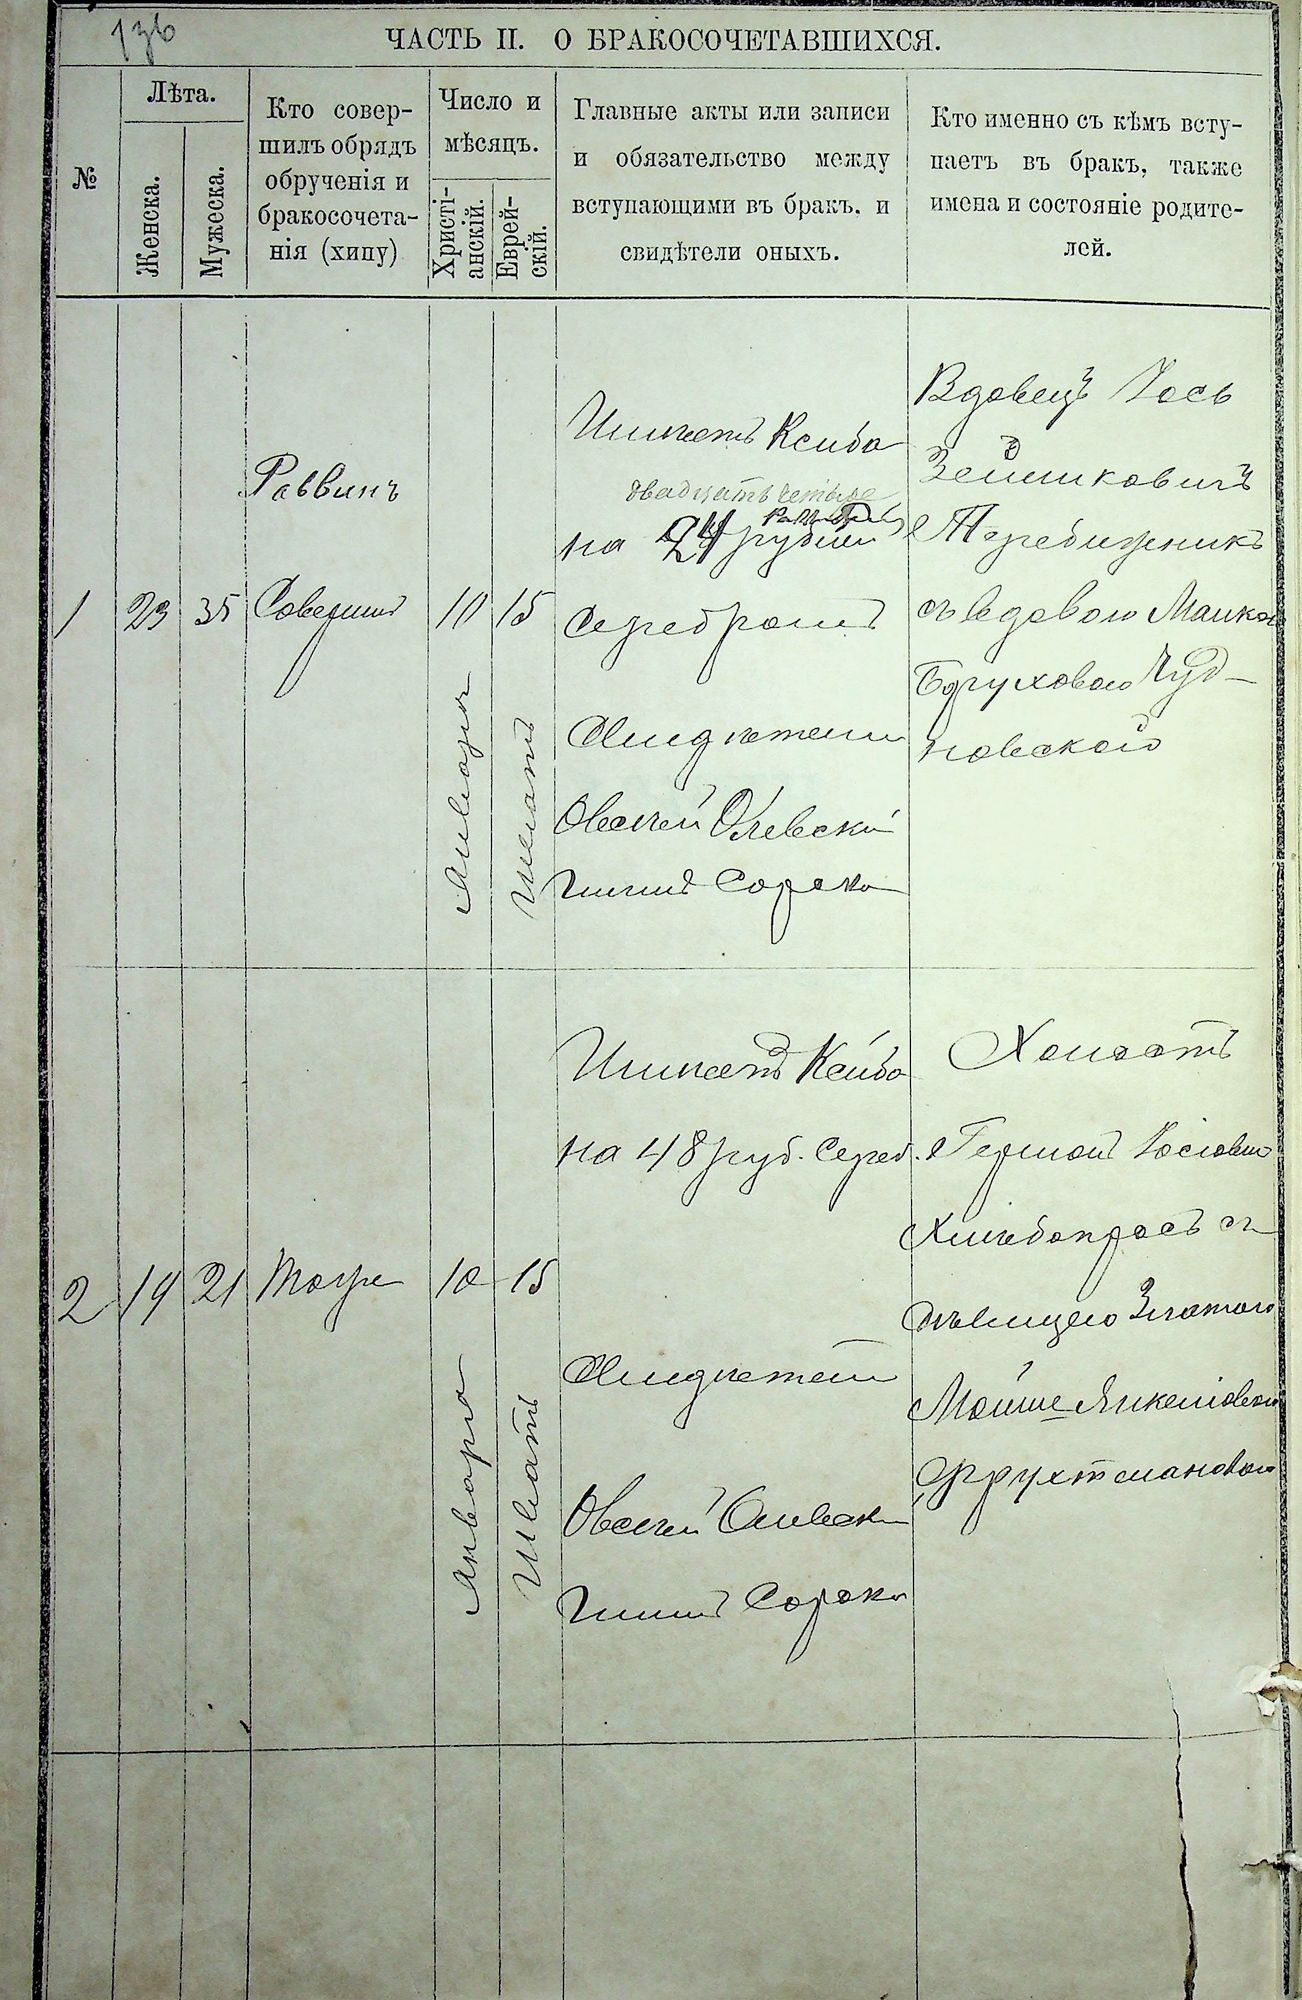 136
ЧАСТЬ II. О БРАКОСОЧЕТАВШИХСЯ.
№
Лѣта.
Женска.
Мужеска.
Кто совер-
шилъ обрядъ
обрученія и
бракосочета-
нія (хипу)
Число и
мѣсяцъ.
Христі-
анскій.
Еврей-
скій.
Главные акты или записи
и обязательство между
вступающими въ бракъ, и
свидѣтели оныхъ.
Кто именно съ кѣмъ всту-
паетъ въ бракъ, также
имена и состояніе родите-
лей.
1
23
35
Раввинъ
Совершил
10
Января
15
Шватъ
Ксиба
двадцать четыре
на 24 рублей
серебромъ
Овсѣй Олевский
Сорока
Вдовецъ Іось
Зейликовичъ
Теребиженикъ
съ вдовою Малкою
Бруховою Чуд-
новской
2
19
21
Тоже
10
Января
15
Шватъ
Ксиба
на 48 руб. сереб.
Овсѣй Олевски
Сорока
Холостъ
Гершон Іосіовичъ
Хлѣбопрасъ съ
дѣвицею Златою
Мойше-Янкеліовою
Фрухтмановою